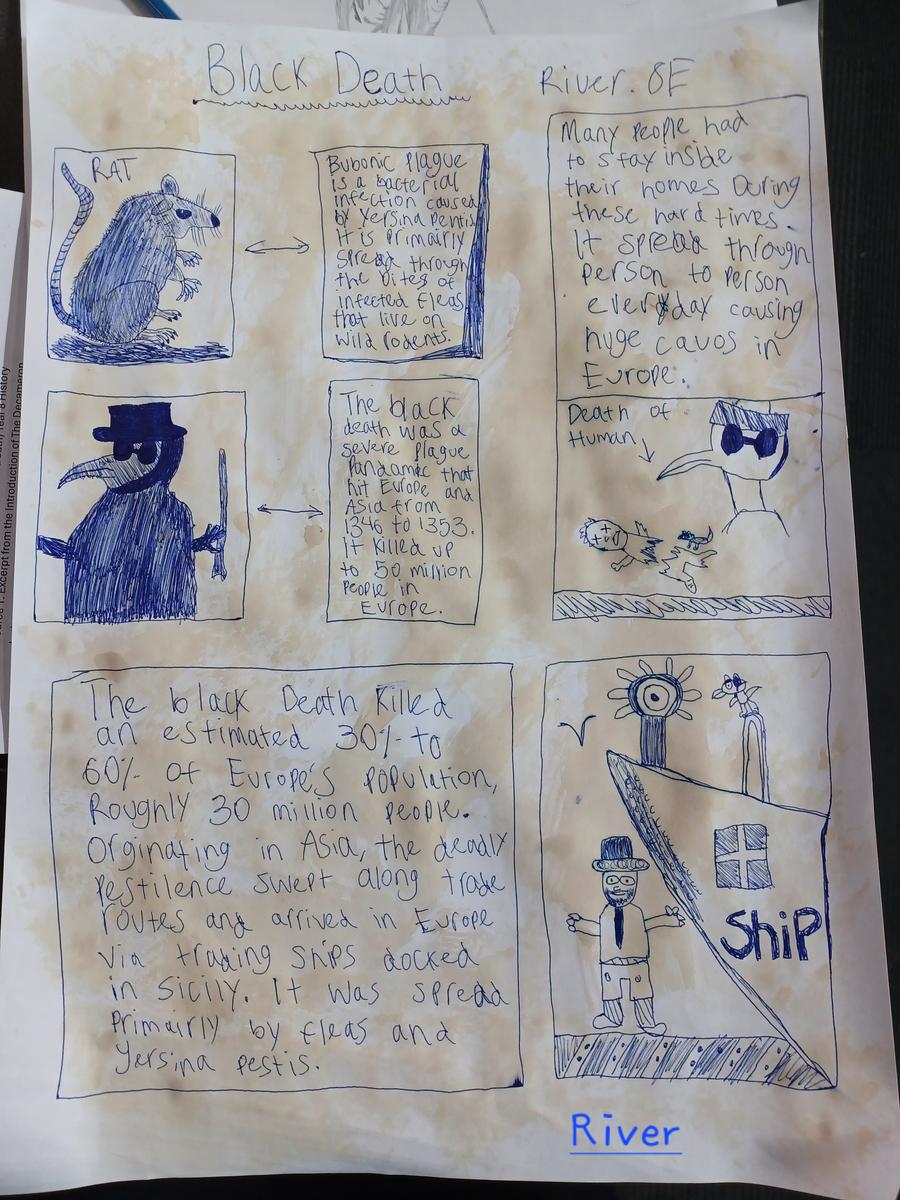 Black Death
River. 8E
RAT
Bubonic Plague
is a bacterial
infection caused
by Yersina Pentis
It is Primairly
Spread through
the bites of
infected fleas
that live on
wild rodents.
Many People had
to stay inside
their homes During
these hard times.
It spread through
Person to Person
everyday causing
huge cavos in
Europe.
The black
death was a
severe Plague
Pandamic that
hit Europe and
Asia from
1346 to 1353.
It killed up
to 50 million
People in
Europe.
Death of
Human
The black Death killed
an estimated 30% to
60% of Europe's population,
Roughly 30 million people.
Orginating in Asia, the deadly
Pestilence swept along trade
routes and arrived in Europe
via trading ships docked
in Sicily. It was spread
Primairly by fleas and
Yersina pestis.
Ship
River
Year 8 History
Source 1: Excerpt from the Introduction of The Decameron